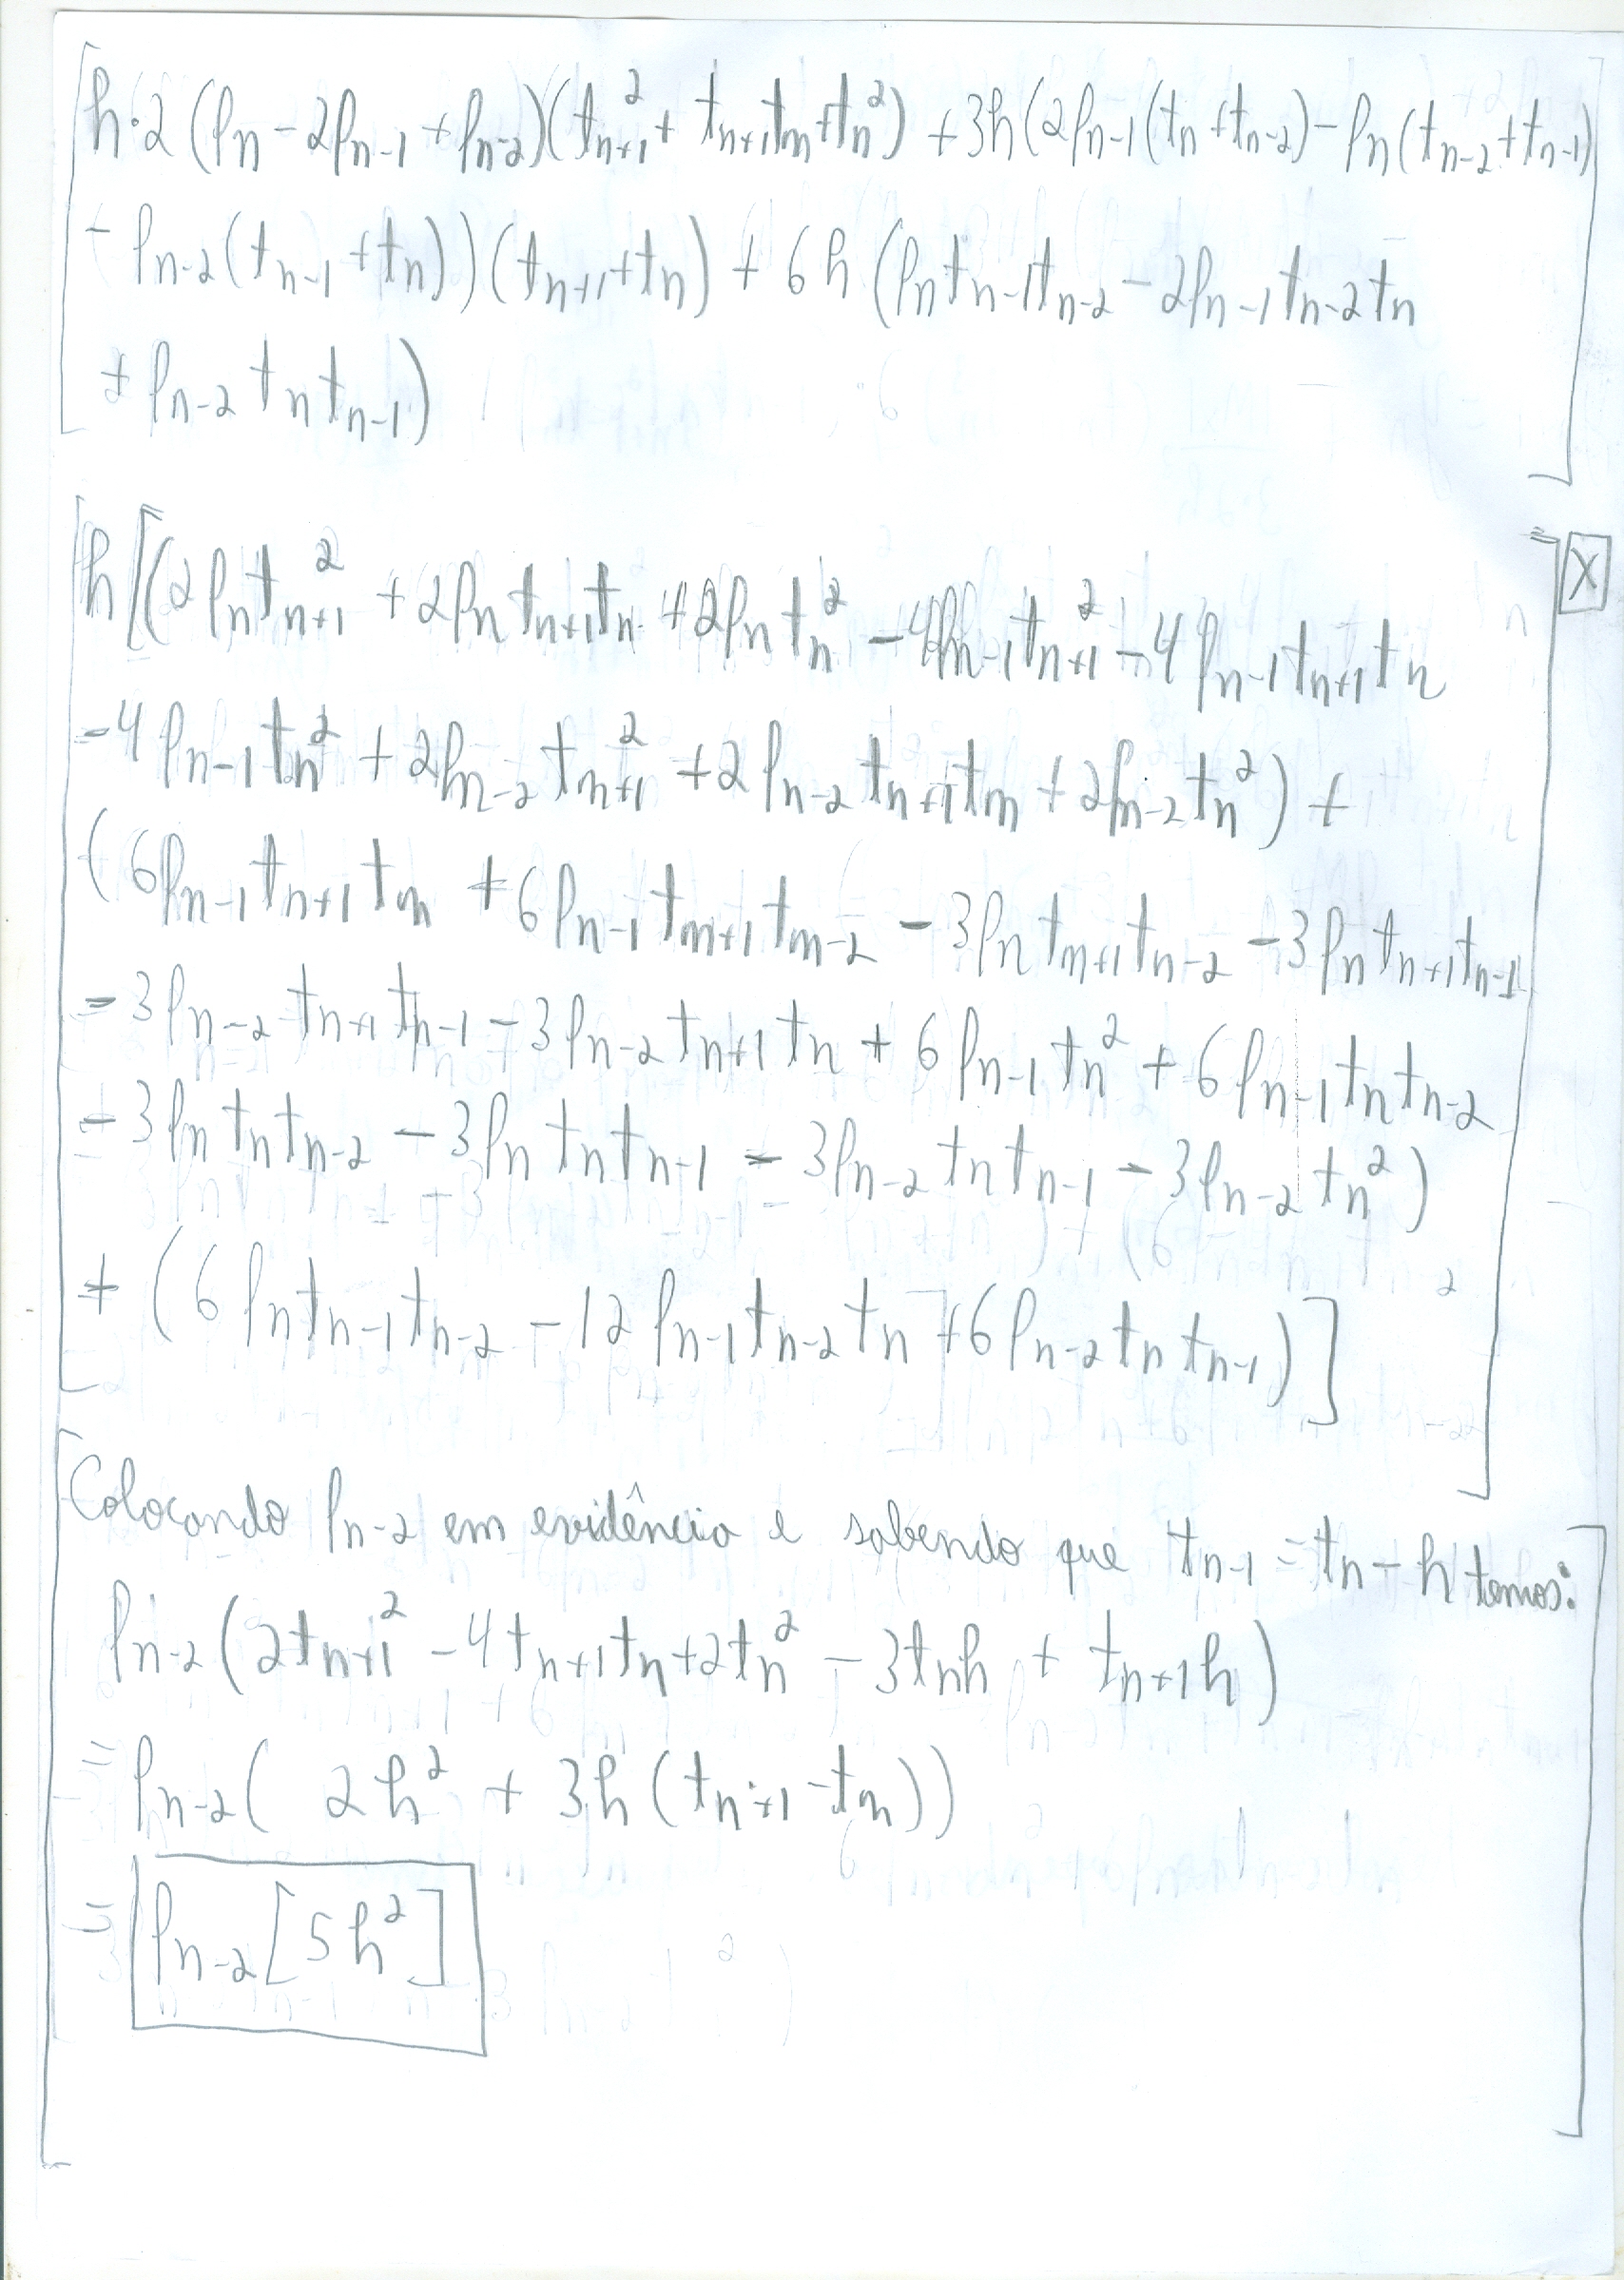 h·2(fn - 2fn-1 + fn-2)(tn+1² + tn+1tn + tn²) + 3h(2fn-1(tn + tn-2) - fn(tn-2 + tn-1)
- fn-2(tn-1 + tn))(tn+1 + tn) + 6h(fn tn-1 tn-2 - 2fn-1 tn-2 tn
+ fn-2 tn tn-1)
= X
h[(2fn tn+1² + 2fn tn+1 tn + 2fn tn² - 4fn-1 tn+1² - 4fn-1 tn+1 tn
- 4fn-1 tn² + 2fn-2 tn+1² + 2fn-2 tn+1 tn + 2fn-2 tn²) +
(6fn-1 tn+1 tn + 6fn-1 tn+1 tn-2 - 3fn tn+1 tn-2 - 3fn tn+1 tn-1
- 3fn-2 tn+1 tn-1 - 3fn-2 tn+1 tn + 6fn-1 tn² + 6fn-1 tn tn-2
- 3fn tn tn-2 - 3fn tn tn-1 - 3fn-2 tn tn-1 - 3fn-2 tn²)
+ (6fn tn-1 tn-2 - 12fn-1 tn-2 tn + 6fn-2 tn tn-1)]
Colocando fn-2 em evidência e sabendo que tn-1 = tn - h temos:
fn-2(2tn+1² - 4tn+1tn + 2tn² - 3tnh + tn+1h)
= fn-2(2h² + 3h(tn+1 - tn))
= fn-2[5h²]